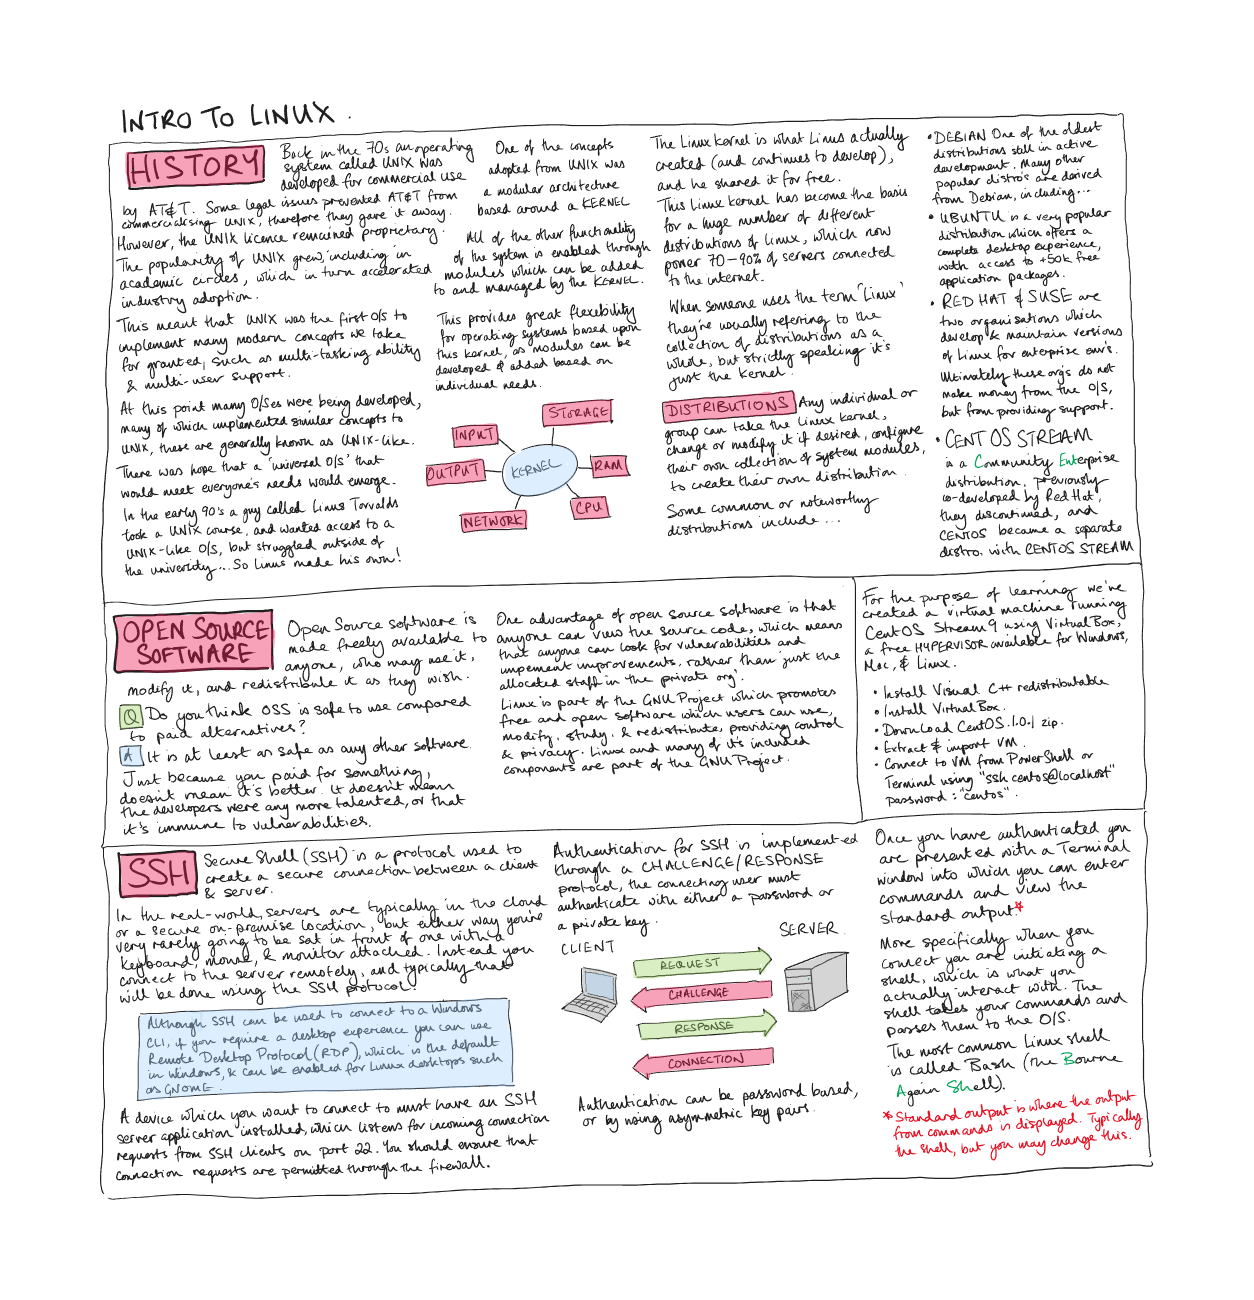 INTRO TO LINUX.
HISTORY
Back in the 70s an operating
system called UNIX was
developed for commercial use
by AT&T. Some legal issues prevented AT&T from
commercialising UNIX, therefore they gave it away.
However, the UNIX licence remained proprietary.
The popularity of UNIX grew, including in
academic circles, which in turn accelerated
industry adoption.
This meant that UNIX was the first O/S to
implement many modern concepts we take
for granted, such as multi-tasking ability
& multi-user support.
At this point many O/Ses were being developed,
many of which implemented similar concepts to
UNIX, these are generally known as UNIX-like.
There was hope that a 'universal O/S' that
would meet everyone's needs would emerge.
In the early 90's a guy called Linus Torvalds
took a UNIX course, and wanted access to a
UNIX-like O/S, but struggled outside of
the univeristy... So Linus made his own!
One of the concepts
adopted from UNIX was
a modular architecture
based around a KERNEL
All of the other functionality
of the system is enabled through
modules which can be added
to and managed by the KERNEL.
This provides great flexibility
for operating systems based upon
this kernel, as modules can be
developed & added based on
individual needs.
STORAGE
INPUT
KERNEL
OUTPUT
RAM
CPU
NETWORK
The Linux kernel is what Linus actually
created (and continues to develop),
and he shared it for free.
This Linux kernel has become the basis
for a huge number of different
distributions of Linux, which now
power 70-90% of servers connected
to the internet.
When someone uses the term 'Linux'
they're usually referring to the
collection of distributions as a
whole, but strictly speaking it's
just the kernel.
DISTRIBUTIONS
Any individual or
group can take the Linux kernel,
change or modify it if desired, configure
their own collection of system modules,
to create their own distribution.
Some common or noteworthy
distributions include...
• DEBIAN One of the oldest
distributions still in active
development. Many other
popular distro's are derived
from Debian, including...
• UBUNTU is a very popular
distribution which offers a
complete desktop experience,
with access to +50k free
application packages.
• RED HAT & SUSE are
two organisations which
develop & maintain versions
of Linux for enterprise env's.
Ultimately these orgs do not
make money from the O/S,
but from providing support.
• CENT OS STREAM
is a Community Enterprise
distribution, previously
co-developed by Red Hat,
they discontinued, and
CENTOS became a separate
distro. with CENTOS STREAM
OPEN SOURCE
SOFTWARE
Open Source software is
made freely available to
anyone, who may use it,
modify it, and redistribute it as they wish.
Q Do you think OSS is safe to use compared
to paid alternatives?
A It is at least as safe as any other software.
Just because you paid for something,
doesn't mean it's better. It doesn't mean
the developers were any more talented, or that
it's immune to vulnerabilities.
One advantage of open source software is that
anyone can view the source code, which means
that anyone can look for vulnerabilities and
impement improvements, rather than 'just the
allocated staff in the private org'.
Linux is part of the GNU Project which promotes
free and open software which users can use,
modify, study, & redistribute, providing control
& privacy. Linux and many of it's included
components are part of the GNU Project.
For the purpose of learning we've
created a virtual machine running
CentOS Stream 9 using VirtualBox,
a free HYPERVISOR available for Windows,
Mac, & Linux.
• Install Visual C++ redistributable
• Install VirtualBox.
• Download CentOS.1.0.1 zip.
• Extract & import VM.
• Connect to VM from PowerShell or
Terminal using "ssh centos@localhost"
password: "centos".
SSH
Secure Shell (SSH) is a protocol used to
create a secure connection between a client
& server.
In the real-world, servers are typically in the cloud
or a secure on-premise location, but either way you're
very rarely going to be sat in front of one with a
keyboard, mouse, & monitor attached. Instead you
connect to the server remotely, and typically that
will be done using the SSH protocol.
Although SSH can be used to connect to a Windows
CLI, if you require a desktop experience you can use
Remote Desktop Protocol (RDP), which is the default
in Windows, & can be enabled for Linux desktops such
as GNOME.
A device which you want to connect to must have an SSH
server application installed, which listens for incoming connection
requests from SSH clients on port 22. You should ensure that
connection requests are permitted through the firewall.
Authentication for SSH is implemented
through a CHALLENGE/RESPONSE
protocol, the connecting user must
authenticate with either a password or
a private key.
CLIENT
SERVER
REQUEST
CHALLENGE
RESPONSE
CONNECTION
Authentication can be password based,
or by using asymmetric key pairs.
Once you have authenticated you
are presented with a Terminal
window into which you can enter
commands and view the
standard output.*
More specifically when you
connect you are initiating a
shell, which is what you
actually interact with. The
shell takes your commands and
passes them to the O/S.
The most common Linux shell
is called Bash (the Bourne
Again Shell).
* Standard output is where the output
from commands is displayed. Typically
the shell, but you may change this.